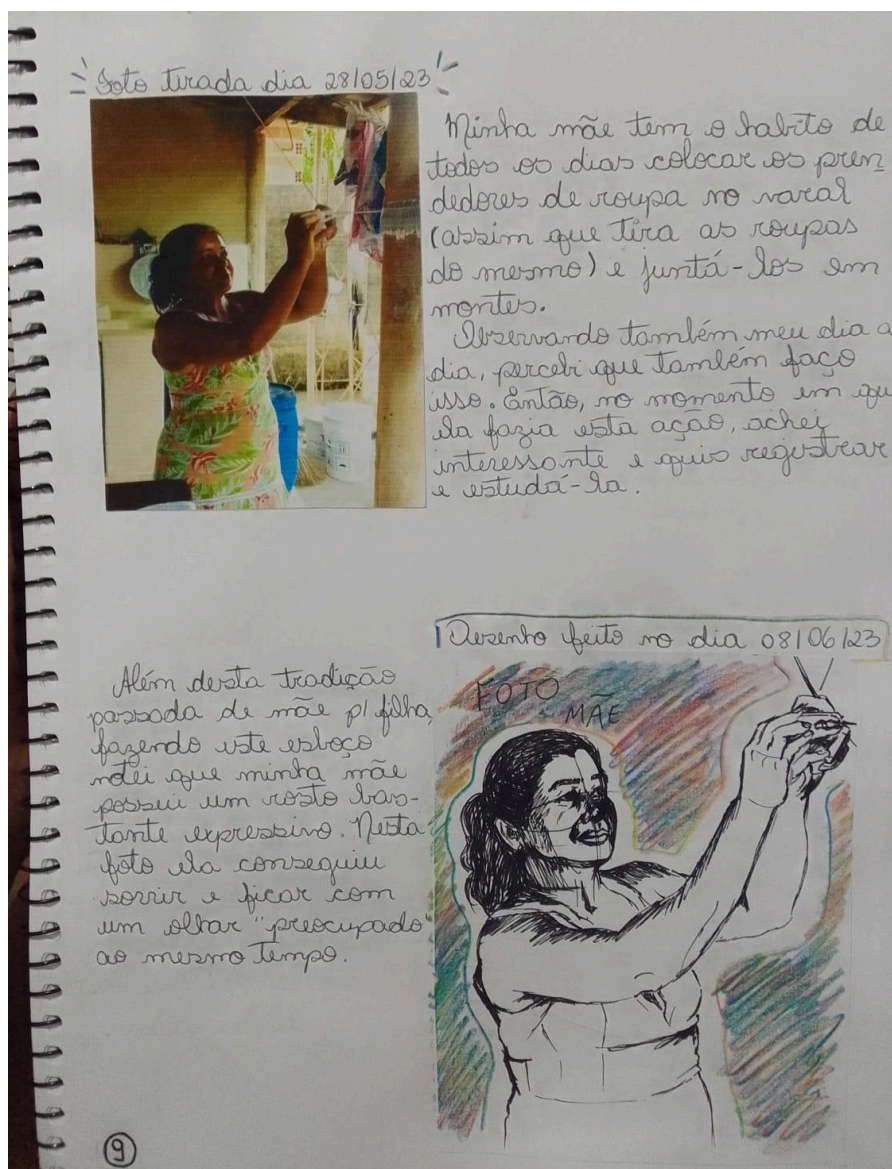 Foto tirada dia 28/05/23
Minha mãe tem o habito de
todos os dias colocar os pren
dedores de roupa no varal
(assim que tira as roupas
do mesmo) e juntá-los em
montes.
Observando também meu dia a
dia, percebi que também faço
isso. Então, no momento em qu
ela fazia esta ação, achei
interessante e quis registrar
e estudá-la.
Desenho feito no dia 08/06/23
FOTO
MÃE
Além desta tradição
passada de mãe p/ filha,
fazendo este esboço
notei que minha mãe
possui um rosto bas-
tante expressivo. Nesta
foto ela conseguiu
sorrir e ficar com
um olhar "preocupado"
ao mesmo tempo.
9